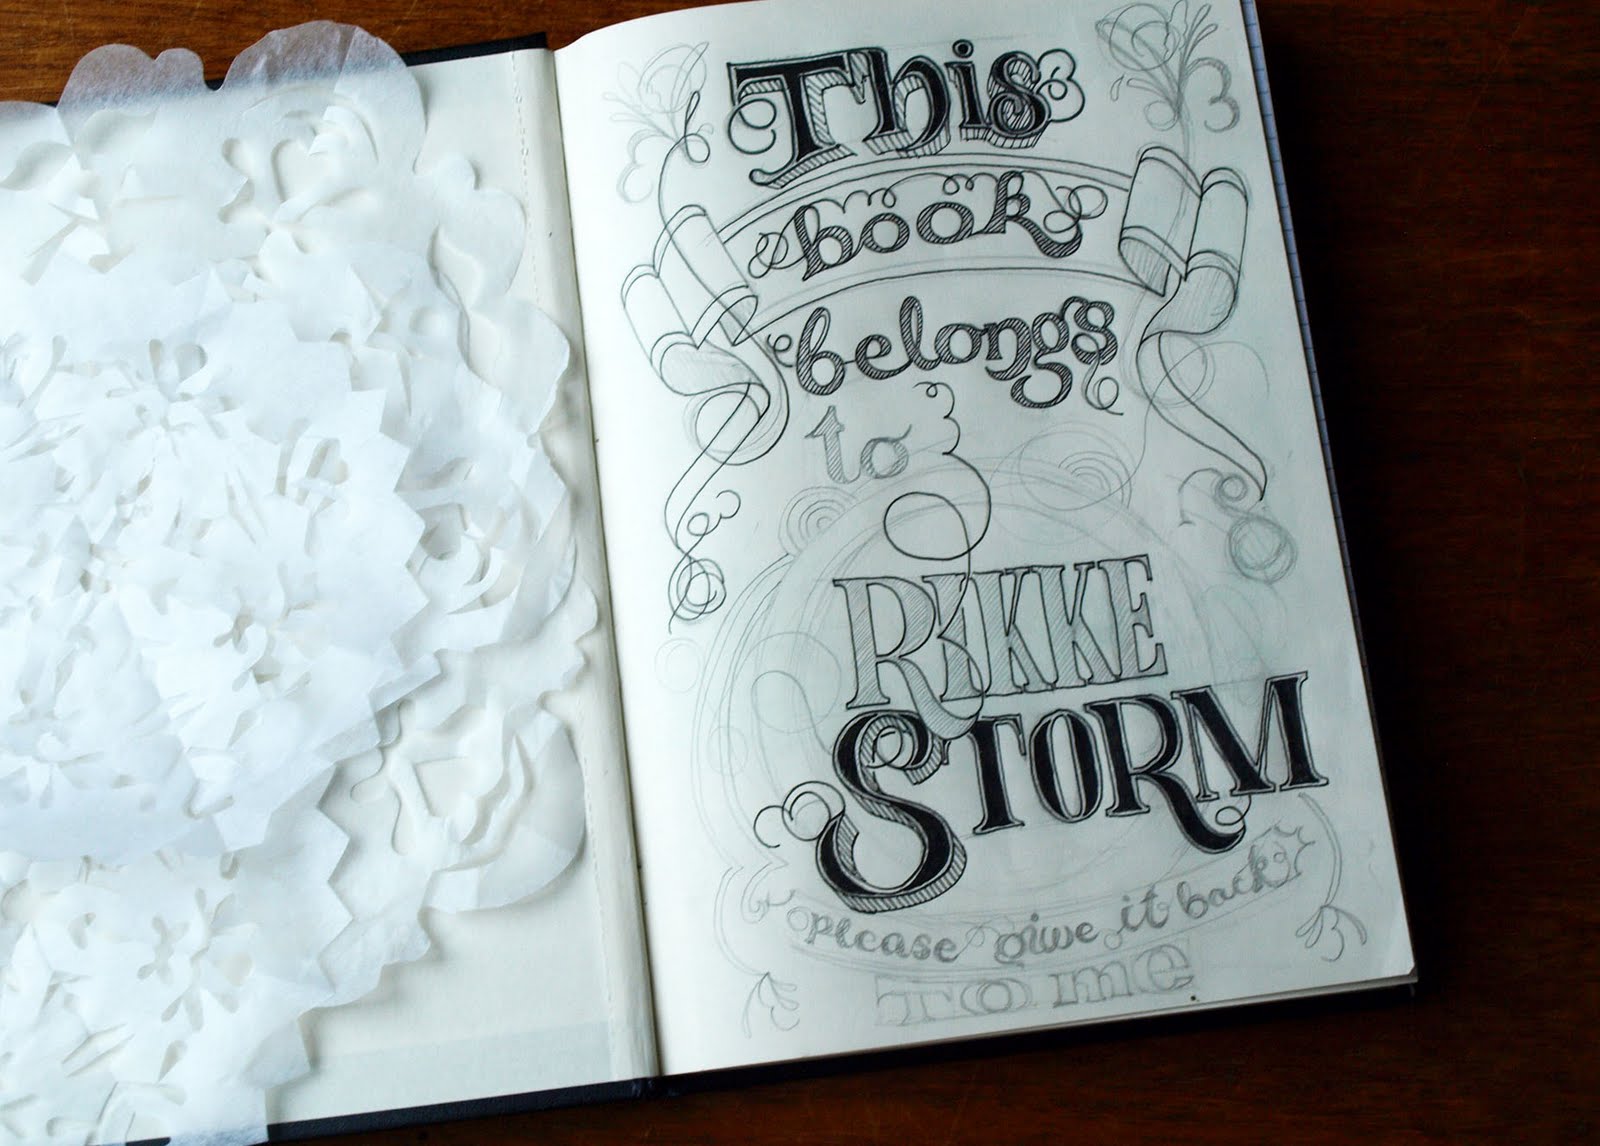 This
book
belongs
to
RIKKE
STORM
please give it back
TO me